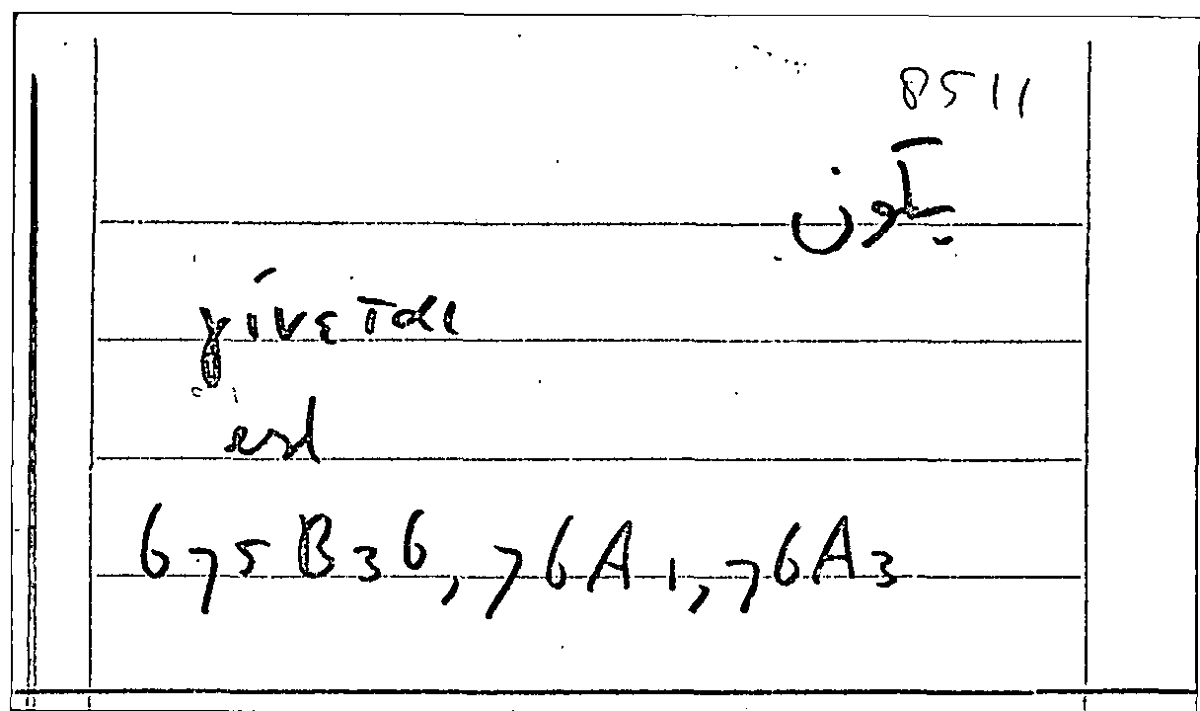 8511
يكون
γίνεται
675B36, 76A1, 76A3